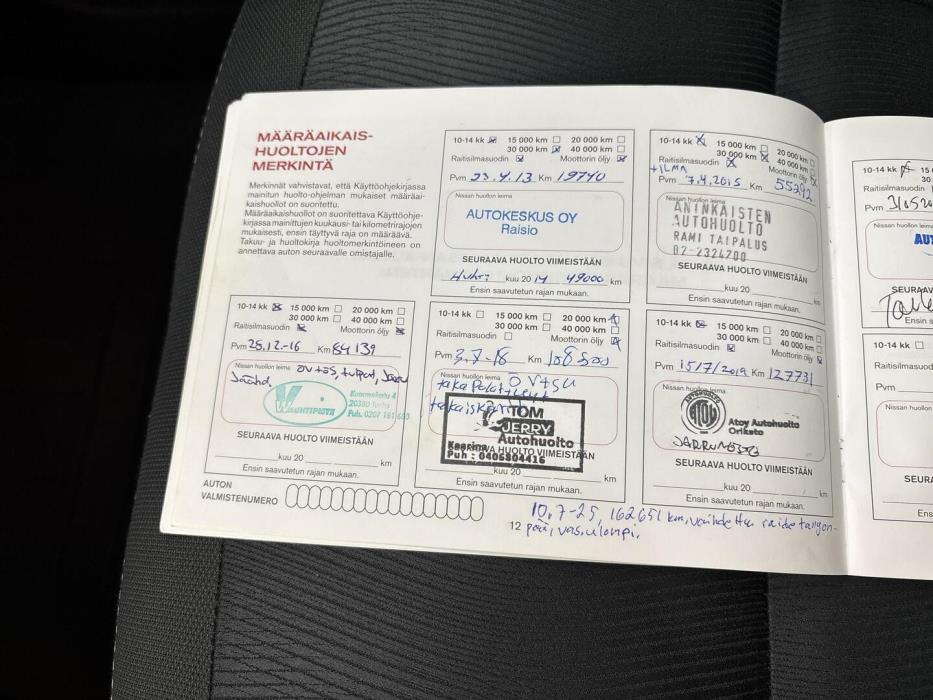 MÄÄRÄAIKAIS-
HUOLTOJEN
MERKINTÄ
Merkinnät vahvistavat, että Käyttöohjekirjassa
mainitun huolto-ohjelman mukaiset määräai-
kaishuollot on suoritettu.
Määräaikaishuollot on suoritettava Käyttöohje-
kirjassa mainittujen kuukausi- tai kilometrirajojen
mukaisesti, ensin täyttyvä raja on määräävä.
Takuu- ja huoltokirja huoltomerkintöineen on
annettava auton seuraavalle omistajalle.
10-14 kk 15 000 km 20 000 km
30 000 km 40 000 km
Raitisilmasuodin Moottorin öljy
Pvm 23.4.13 Km 19740
Nissan huollon leima
AUTOKESKUS OY
Raisio
SEURAAVA HUOLTO VIIMEISTÄÄN
Huhti kuu 2014 49000 km
Ensin saavutetun rajan mukaan.
10-14 kk 15 000 km 20 000 km
30 000 km 40 000 km
Raitisilmasuodin Moottorin öljy
+ILMA
Pvm 7.4.2015 Km 55292
Nissan huollon leima
ANINKAISTEN
AUTOHUOLTO
RAMI TAIPALUS
02-2324700
SEURAAVA HUOLTO VIIMEISTÄÄN
kuu 20 km
Ensin saavutetun rajan mukaan.
10-14 kk 15
30
Raitisilmasuodin
Pvm
Nissan huollon leima
AUT
SEURAAV
Ensin s
10-14 kk 15 000 km 20 000 km
30 000 km 40 000 km
Raitisilmasuodin Moottorin öljy
Pvm 28.12.-16 Km 84 139
Nissan huollon leima öv+ös, tulpat,
VAUHTIPISTÄ
20380 Turku
Puh. 0207 181 680
SEURAAVA HUOLTO VIIMEISTÄÄN
kuu 20 km
Ensin saavutetun rajan mukaan.
10-14 kk 15 000 km 20 000 km
30 000 km 40 000 km
Raitisilmasuodin Moottorin öljy
Pvm 3.7-18 Km 108500
Nissan huollon leima
TOM
JERRY
Autohuolto
Kaarina
Puh : 0406804416
SEURAAVA HUOLTO VIIMEISTÄÄN
kuu 20 km
Ensin saavutetun rajan mukaan.
10-14 kk 15 000 km 20 000 km
30 000 km 40 000 km
Raitisilmasuodin Moottorin öljy
Pvm 15/7/2019 Km 127731
Nissan huollon leima
AUTOHUOLTO
ATOY
Atoy Autohuolto
Oriketo
JARRUNESTE
SEURAAVA HUOLTO VIIMEISTÄÄN
kuu 20 km
Ensin saavutetun rajan mukaan.
10-14 kk
Raitisilmasuodin
Pvm
Nissan huollon
SEURA
Ens
AUTON
VALMISTENUMERO
10.7-25, 162651 km, vaihdettu raidetangon-
12 pää, vas. ulompi.